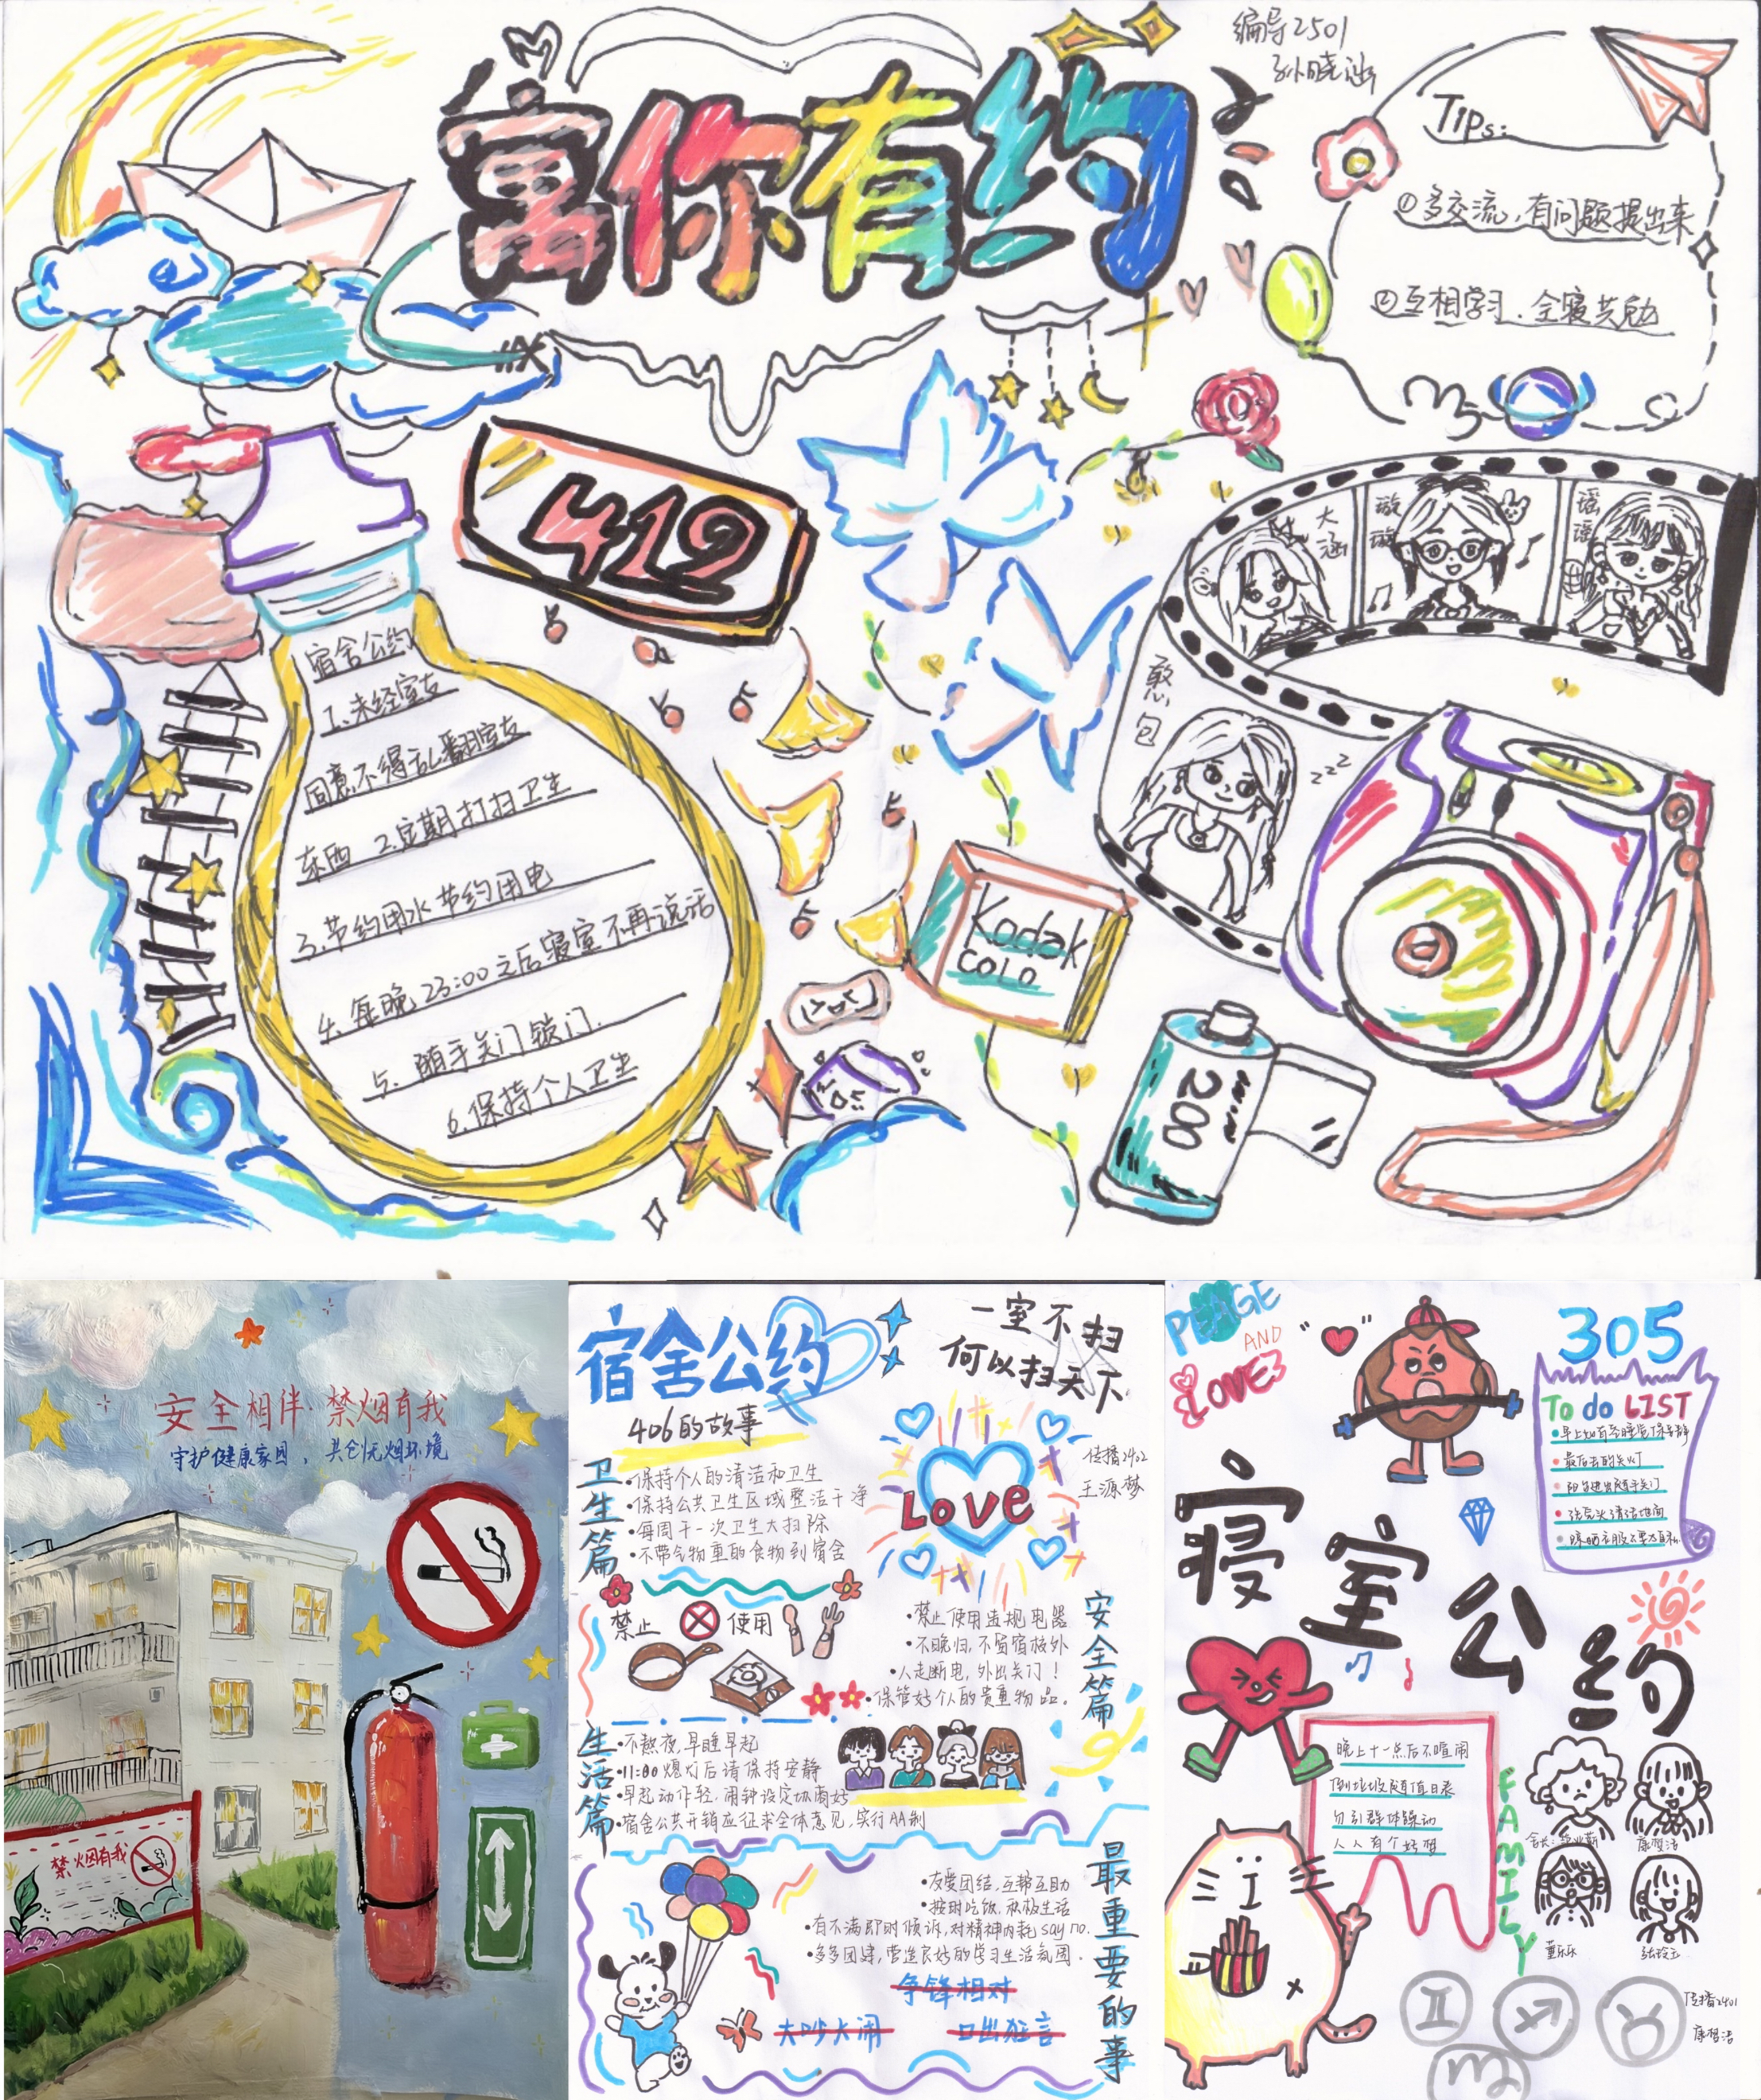 寓你有约
编导2501
孙晓涵
Tips:
①多交流,有问题提出来
②互相学习.全寝共勉
419
宿舍公约
1.未经室友
同意不得乱翻室友
东西 2.定期打扫卫生
3.节约用水节约用电
4.每晚23:00之后寝室不再说话
5.随手关门锁门.
6.保持个人卫生
大涵
璇璇
瑶瑶
憨包
zzz
Kodak
COLD
200
安全相伴·禁烟有我
守护健康家园,共创无烟环境
禁烟有我
宿舍公约
一室不扫
何以扫天下
406的故事
传播2402
王源梦
Love
卫生篇
•保持个人的清洁和卫生
•保持公共卫生区域整洁干净
•每周干一次卫生大扫除
•不带气物重的食物到宿舍
禁止 使用
安全篇
•禁止使用违规电器
•不晚归,不留宿校外
•人走断电,外出关门!
•保管好个人的贵重物品。
生活篇
•不熬夜,早睡早起
•11:00熄灯后请保持安静
•早起动作轻.闹钟设定协商好
•宿舍公共开销应征求全体意见,实行AA制
最重要的事
•友爱团结,互帮互助
•按时吃饭.积极生活
•有不满即时倾诉,对精神内耗say no.
•多多团建,营造良好的学习生活氛围.
争锋相对
大吵大闹
口出狂言
PEAGE
AND
LOVE
305
To do LIST
•早上如有人睡觉保持安静
•最后走的关灯
•阳台进出随手关门
•洗完头清洁地面
寝室公约
晚上十一点后不喧闹
倒垃圾随值日表
勿引群体躁动
人人有个好梦
FAMILY
康智洁
董乐乐
传播2401
康智洁